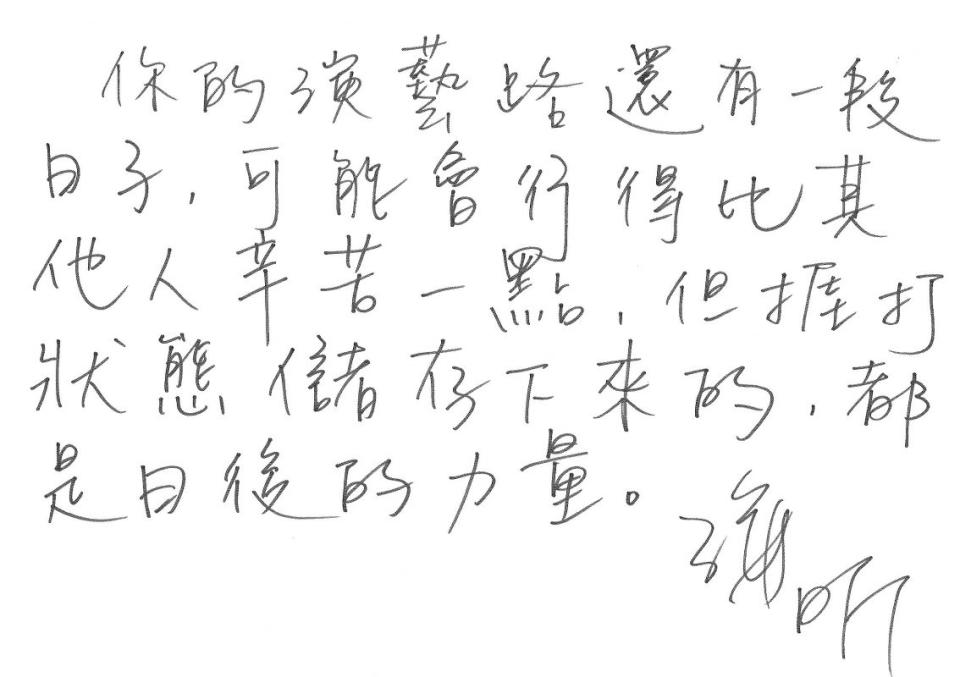 你的演藝路還有一段
日子，可能會行得比其
他人辛苦一點，但捱打
狀態儲存下來的，都
是日後的力量。